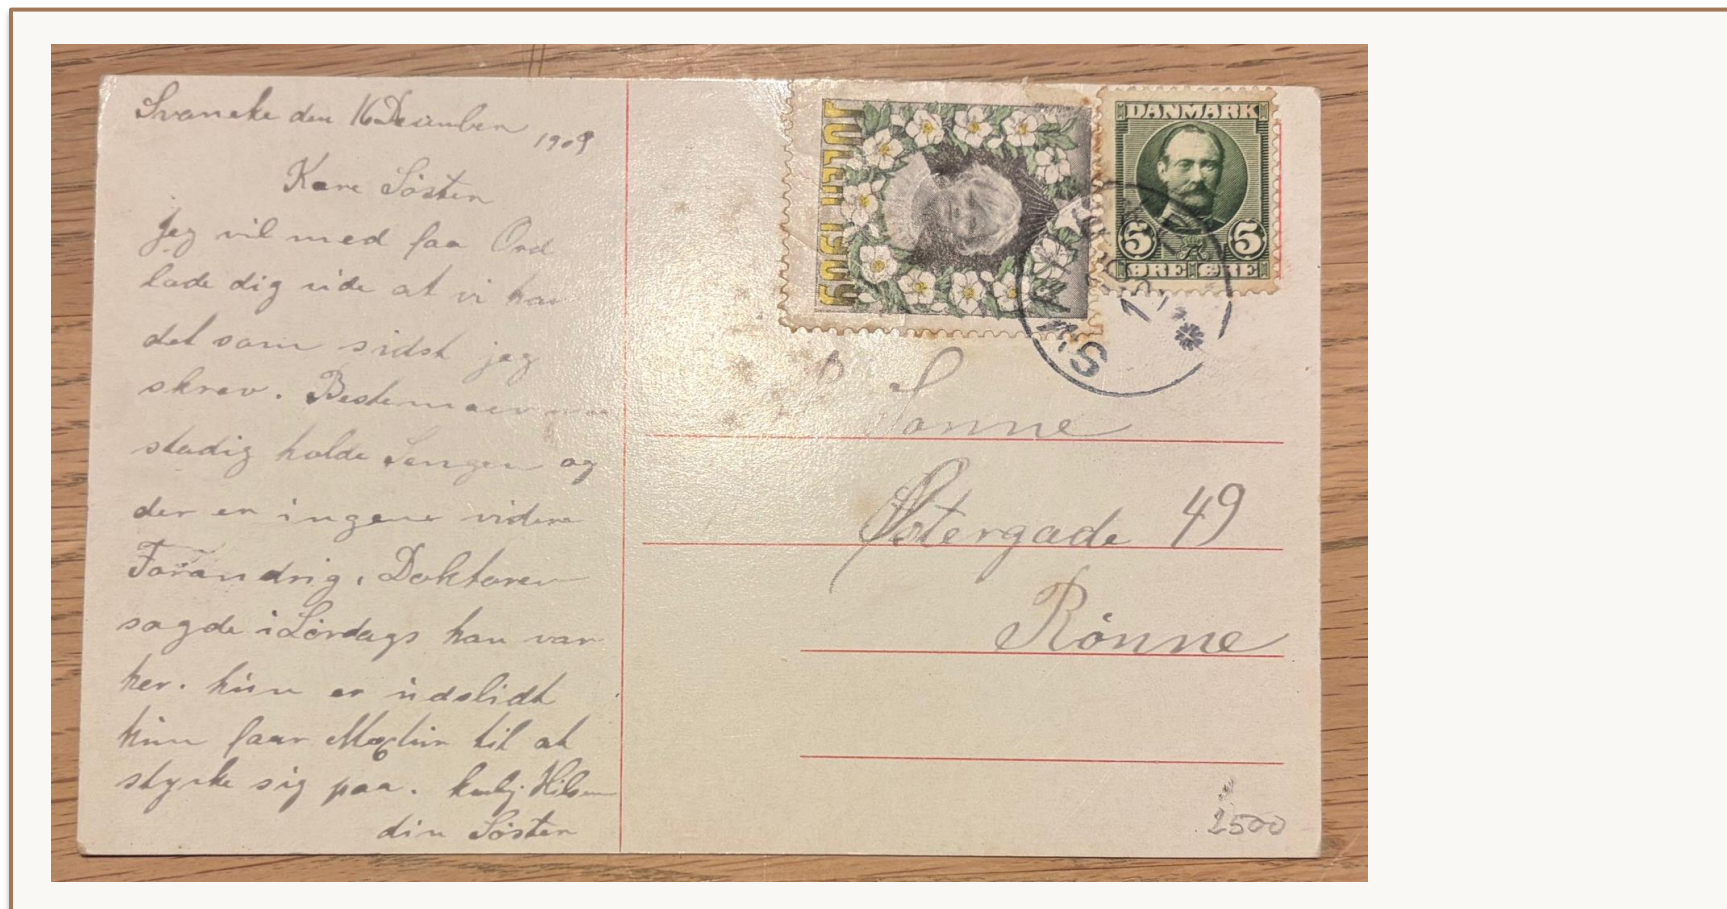 Svaneke den 16 December
1909
Kære Søster
jeg vil med faa Ord
lade dig vide at vi har
det som sidst jeg
skrev. Bestemoer maa
stadig holde Sengen og
der er ingen videre
Forandrig. Doktoren
sagde i Lørdags han var
her. hun er udslidt
hun faar Medicin til at
styrke sig paa. Kærlig Hilsen
din Søster
JULEN 1909
DANMARK
5 5
ØRE ØRE
Sonne
Østergade 49
Rønne
2500